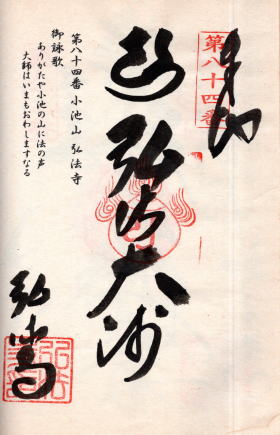 奉拝
第八十四番
弘法大師
弘法寺
第八十四番 小池山 弘法寺
御詠歌
ありがたや小池の山に法の声
大師はいまもおわしますなる